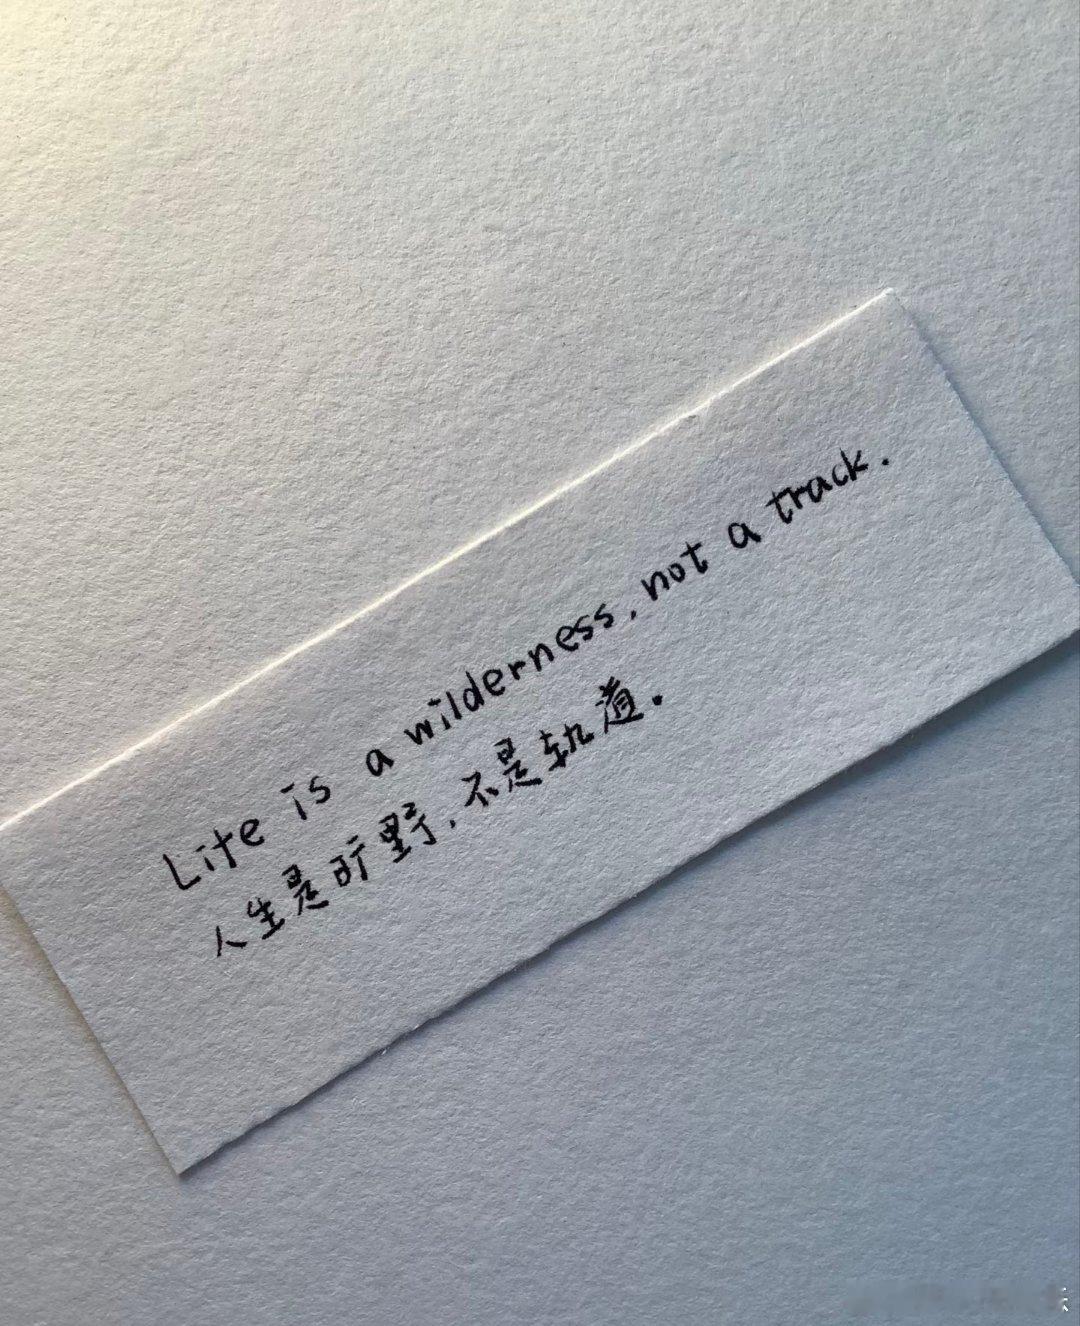 Life is a wilderness, not a track.
人生是旷野,不是轨道.